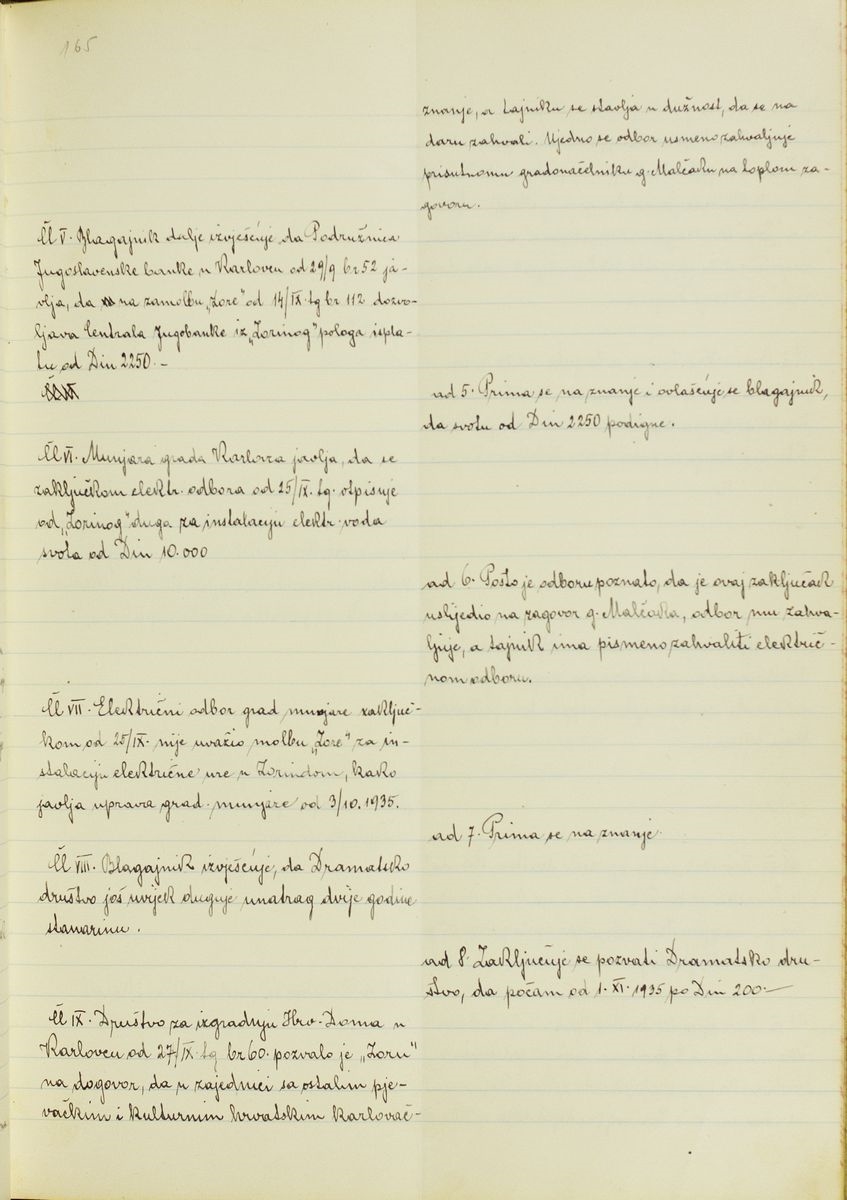 165
znanje, a tajniku se stavlja u dužnost, da se na
daru zahvali. Ujedno se odbor usmeno zahvaljuje
prisutnomu gradonačelniku g. Malčaku na toplom za-
govoru.
Čl V. Blagajnik dalje izvješćuje da Podružnica
Jugoslavenske banke u Karlovcu od 29/9 br 52 ja-
vlja, da na zamolbu „Zore" od 14/IX. tg br 112 dozvo-
ljava Centrala Jugobanke iz „Zorinog" pologa ispla-
tu od Din 2250.-
ad 5. Prima se na znanje i ovlašćuje se blagajnik,
da svotu od Din 2250 podigne.
Čl VI. Munjara grada Karlovca javlja, da se
zaključkom elektr. odbora od 25/IX. tg. otpisuje
od „Zorinog" duga za instalaciju elektr. voda
svota od Din 10.000
ad 6. Pošto je odboru poznato, da je ovaj zaključak
uslijedio na zagovor g. Malčaka, odbor mu zahva-
ljuje, a tajnik ima pismeno zahvaliti električ-
nom odboru.
Čl VII. Električni odbor grad munjare zaključ-
kom od 25/IX. nije uvažio molbu „Zore" za in-
stalaciju električne ure u Zorindom, kako
javlja uprava grad. munjare od 3/10. 1935.
ad 7. Prima se na znanje.
Čl VIII. Blagajnik izvješćuje, da Dramatsko
društvo još uvijek duguje unatrag dvije godine
stanarinu.
ad 8. Zaključuje se pozvati Dramatsko dru-
štvo, da počam od 1. XI. 1935 po Din 200.-
Čl IX. Društvo za izgradnju Hrv. Doma u
Karlovcu od 27/IX. tg br 60. pozvalo je „Zoru"
na dogovor, da u zajednici sa ostalim pje-
vačkim i kulturnim hrvatskim karlovač-